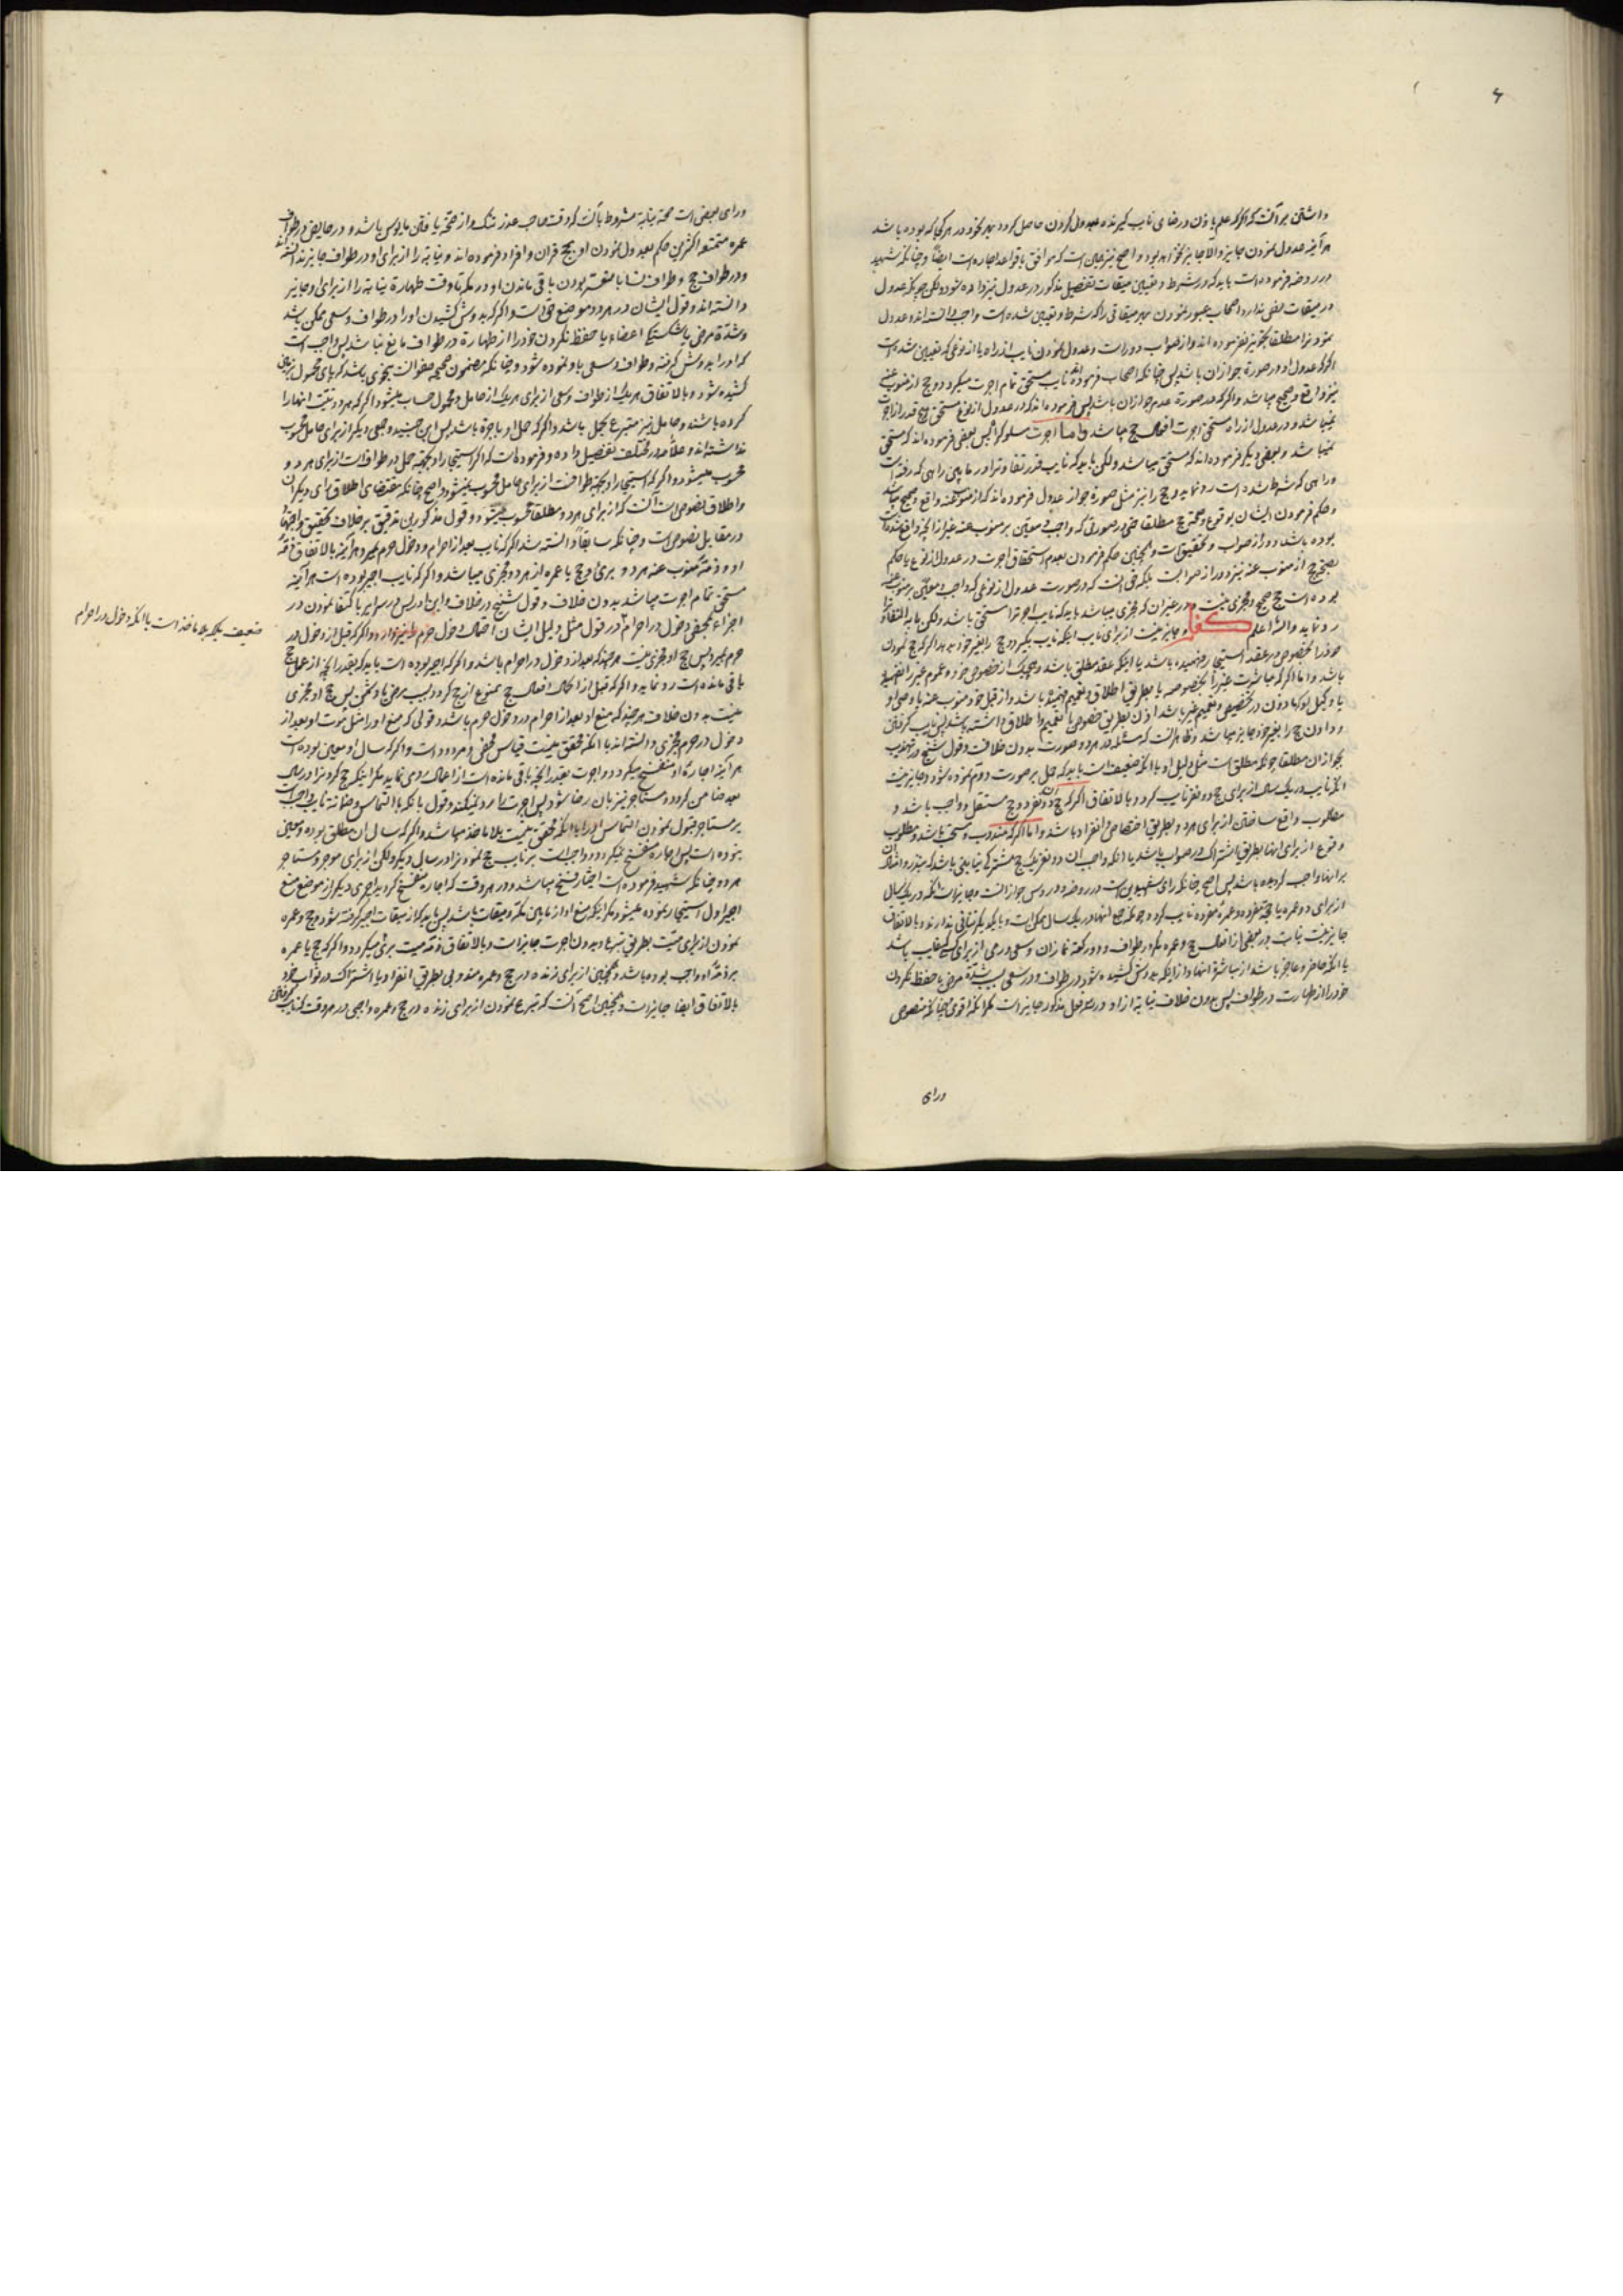 داشتن بر آنست که اگر علم باذن و رضای نایب گیرنده بعدول کردن حاصل کردد
هر آینه عدول نمودن جایز والا جایز نخواهد بود و اصح نیز همین است که موافق با قواعد اجاره است ایضاً و چنانکه شهید
در روضه فرموده است باید که در شرط و تعیین میقات تفصیل مذکور در عدول نیز داده شود ولکن چونکه عدول
در میقات معنی ندارد اصحاب عبور نمودن بهر میقاتی را که شرط و تعیین شده است واجب دانسته اند و عدول
نمودنرا مطلقا تجویز نفرموده اند و از صواب دور است و عدول نمودن نایب از راه یا از نوعی که تعیین شده است
اگر که عدول او در صورة جواز آن باشد پس چنانکه اصحاب فرموده اند نایب مستحق تمام اجرت میکردد و حج از منوب عنه
نیز واقع و صحیح میباشد و اگر که در صورة عدم جواز آن باشد پس فرموده اند که در عدول از نوع مستحق هیچ قدر از اجرت
نمیباشد و در عدول از راه مستحق اجرت افعال حج میباشد و اما اجرت سلوک راه پس بعضی فرموده اند که مستحق
نمیباشد و بعضی دیگر فرموده اند که مستحق میباشد ولکن باید که نایب قدر تفاوترا در مابین راهی که رفته است
و راهی که شرط شده است رد نماید و حج را نیز مثل صورة جواز عدول فرموده اند که از منوب عنه واقع و صحیح میباشد
و حکم فرمودن ایشان بوقوع و صحة حج مطلقا حتی در صورتی که واجب معین بر منوب عنه غیر از آنچه واقع شده است
بوده باشد دور از صواب و تحقیق است و همچنین حکم فرمودن بعدم استحقاق اجرت در عدول از نوع با حکم
بصحة حج از منوب عنه نیز دور از صوابست بلکه حق آنست که در صورت عدول از نوعی که واجب معین بر منوب عنه
بوده است حج صحیح و مجزی نیست و در غیر آن که مجزی میباشد باید که نایب اجرترا مستحق باشد ولکن ما به التفاوترا
رد نماید والله اعلم و جایز نیست از برای نایب اینکه نایب بگیرد و حج را بغیر خود بدهد اگر که حج نمودن
خود را بخصوص در عقد استیجار فهمیده باشد یا اینکه عقد مطلق باشد و هیچیک از خصوص خود و عموم غیر را نفهمیده
باشد و اما اگر که مباشرت غیر را بخصوصه یا بطریق اطلاق و تعمیم فهمیده باشد و از قبل خود منوب عنه یا وصی او
یا وکیل او که ماذون در تخصیص و تعمیم غیر باشد اذن بطریق خصوص یا تعمیم و اطلاق داشته باشد پس نایب گرفتن
و دادن حج را بغیر خود جایز میباشد و ظاهر آنست که مسئله در هر دو صورت بدون خلافست و قول شیخ در تهذیب
بجواز آن مطلقا چونکه مطلق است مثل دلیل او با آنکه ضعیف است باید که حمل بر صورت دوم نموده شود و جایز نیست
آنکه نایب در یک سال از برای حج دو نفر نایب کردد بالاتفاق اگر که حج آن دو نفر دو حج مستقل و واجب باشد و
مطلوب واقع ساختن از برای هر دو بطریق اختصاص و انفراد باشد و اما اگر که مندوب و مستحب باشد و مطلوب
وقوع از برای آنها بطریق اشتراک در ثواب باشد یا آنکه واجب آن دو نفر یک حج مشترک نیابتی باشد که بنذر و امثال آن
بر آنها واجب کردیده باشد پس اصح چنانکه رای شهیدین است در روضه و دروس جواز است و جایز است آنکه در یک سال
از برای دو عمره یا حجة مفرده و عمرة مفرده نایب کردد چونکه جمع آنها در یک سال ممکن است و با یکدیگر تنافی ندارند و بالاتفاق
جایز نیست نیابت در بعضی از افعال حج و عمره مگر در طواف و دو رکعة نماز آن و سعی و رمی از برای کسی که غایب باشد
یا آنکه حاضر و عاجز باشد از مباشرة آنها و از اینکه بدوش کشیده شود در طواف و در سعی بسبب شدة مرض یا حفظ نکردن
خود را از طهارت در طواف پس بدون خلاف نیابة از او در سه فعل مذکور جایز است مگر آنکه اقوی چنانکه منصوص
ورای
ورای بعضی است صحة نیابة مشروط بآنست که وقت صاحب عذر تنک و از صحة یافتن مایوس باشد و در حایض در طواف
عمره متمتع اکثرین حکم بعدول نمودن او بحج قران و افراد فرموده اند و نیابة را از برای او در طواف جایز ندانسته اند
و در طواف حج و طواف نسا با متعسر بودن باقی ماندن او در مکه تا وقت طهارة نیابة را از برای او جایز
دانسته اند و قول ایشان در هر دو موضع حق است و اگر که بدوش کشیدن او را در طواف و سعی ممکن باشد
و شدة مرض یا شکستگی اعضاء یا حفظ نکردن خود را از طهارة در طواف مانع نباشد پس واجب است
که او را بدوش گرفته و طواف و سعی باو نموده شود و چنانکه مضمون صحیحه صفوانست مجزی باشد که پای محمول بر زمین
کشیده شود و بالاتفاق هر یک از طواف و سعی از برای هر یک از حامل و محمول حساب میشود اگر که هر دو نیت آنها را
کرده باشند و حامل نیز متبرع بحمل باشد و اگر که حمل او باجرة باشد پس ابن جنید و جمعی دیگر از برای حامل محسوب
نداشته اند و علامه در مختلف تفصیل داده و فرموده است که اگر استیجار او بجهة حمل در طوافست از برای هر دو
محسوب میشود و اگر که استیجار او بجهة طوافست از برای حامل محسوب نمیشود و اصح چنانکه مقتضای اطلاق رای دیگران
و اطلاق نصوص است آنست که از برای هر دو مطلقا محسوب میشود و قول مذکورین تدقیق بر خلاف تحقیق و اجتهاد
در مقابل نصوص است و چنانکه سابقاً دانسته شد اگر که نایب بعد از احرام و دخول حرم بمیرد هر آینه بالاتفاق ذمّه
او و ذمّة منوب عنه هر دو بری و حج یا عمره از هر دو مجزی میباشد و اگر که نایب اجیر بوده است هر آینه
مستحق تمام اجرت میباشد بدون خلاف و قول شیخ در خلاف و ابن ادریس در سرایر باکتفا نمودن در
اجزاء بمحض دخول در احرام
ضعیف بلکه بلا ماخذ است با آنکه دخول در احرام
در قول مثل دلیل ایشان احتمال دخول حرم را نیز دارد و اگر که قبل از دخول در
حرم بمیرد پس حج او مجزی نیست هر چند که بعد از دخول در احرام باشد و اگر که اجیر بوده است باید که بقدر آنچه از عمل حج
باقی مانده است رد نماید و اگر که قبل از اکمال افعال حج ممنوع از حج کردد بسبب مرض یا دشمن پس حج او مجزی
نیست بدون خلاف هر چند که منع او بعد از احرام و دخول حرم باشد و قولی که منع او را مثل موت او بعد از
دخول در حرم مجزی دانسته اند با آنکه محقق نیست قیاس محض و مردود است و اگر که سال او معین بوده است
هر آینه اجارة او منفسخ میکردد و اجرت بقدر آنچه باقی مانده است از اعمال رد می نماید مگر اینکه حج کردنرا در سال
بعد ضامن کردد و مستاجر نیز بآن رضا شود پس اجرت را رد نمیکند و قول بآنکه با التماس و ضمانة نایب واجب است
بر مستاجر قبول نمودن التماس او را با آنکه محقق نیست بلا ماخذ میباشد و اگر که سال آن مطلق بوده و معین
نبوده است پس اجاره منفسخ نمیکردد و واجب است بر نایب حج نمودنرا در سال دیگر ولکن از برای موجر و مستاجر
هر دو چنانکه شهید فرموده است اختیار فسخ میباشد و در هر وقت که اجاره منفسخ کردید اجیری دیگر از موضع منع
اجیر اول استیجار نموده میشود مگر اینکه منع او از مابین مکه و میقات باشد پس باید که از میقات اجیر گرفته شود و حج و عمره
نمودن از برای میّت بطریق تبرع و بدون اجرت جایز است و بالاتفاق ذمّه میت بری میکردد و اگر که حج یا عمره
بر ذمّة او واجب بوده باشد و همچنین از برای زنده در حج و عمره مندوبی بطریق انفراد یا اشتراک در ثواب خود
بالاتفاق ایضا جایز است و همچنین اصح آنست که تبرع نمودن از برای زنده در حج و عمره واجبی در هر وقت که نایب گرفتن